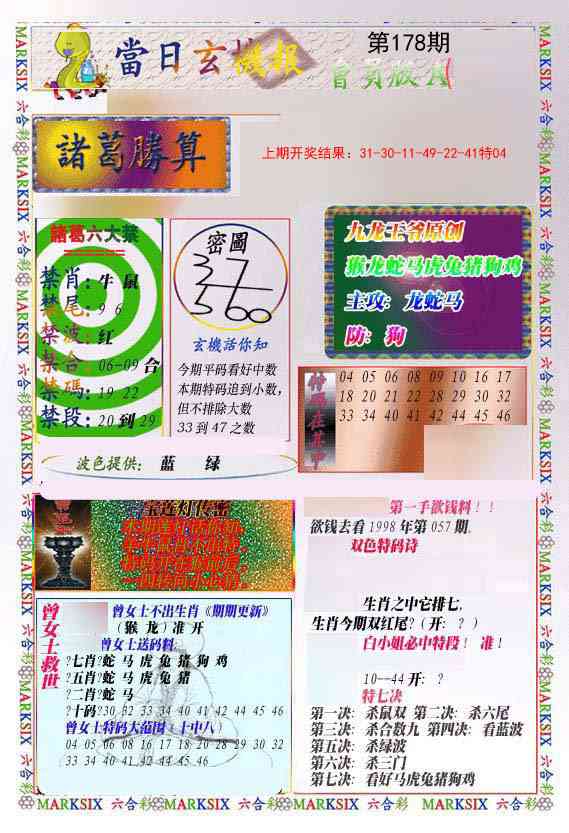 當日玄机
微报
第178期
會員版A
諸葛勝算
上期开奖结果：31-30-11-49-22-41特04
諸葛六大禁
禁肖：牛 鼠
禁尾：9 6
禁波：红
禁合：06-09 合
禁碼：19 22
禁段：20 到 29
密圖
37
360
玄機活你知
今期平码看好中数
本期特码追到小数，
但不排除大数
33 到 47 之数
九龙王爷原创
猴龙蛇马虎兔猪狗鸡
主攻：龙蛇马
防：狗
特碼在其中
04 05 06 08 09 10 16 17
18 20 21 22 28 29 30 32
33 34 40 41 42 44 45 46
波色提供： 蓝 绿
宝莲灯传密
曾女士救世
曾女士不出生肖《期期更新》
（猴 龙）准 开
曾女士送码料
?七肖?蛇 马 虎 兔 猪 狗 鸡
?五肖?蛇 马 虎 兔 猪
?二肖?蛇 马
?十码?30 32 33 34 40 41 42 44 45 46
曾女士特码大范围（十中八）
04 05 06 08 16 17 18 20 28 29 30 32
33 34 40 41 42 44 45 46
第一手欲钱料！！
欲钱去看 1998 年第 057 期.
双色特码诗
生肖之中它排七,
生肖今期双红尾?（开: ？）
白小姐必中特段！ 准！
10--44 开: ？
特七决
第一决：杀鼠双 第二决：杀六尾
第三决：杀合数九 第四决：看蓝波
第五决：杀绿波
第六决：杀三门
第七决：看好马虎兔猪狗鸡
MARKSIX 六合彩 MARKSIX 六合彩 MARKSIX 六合彩 MARKSIX 六合彩